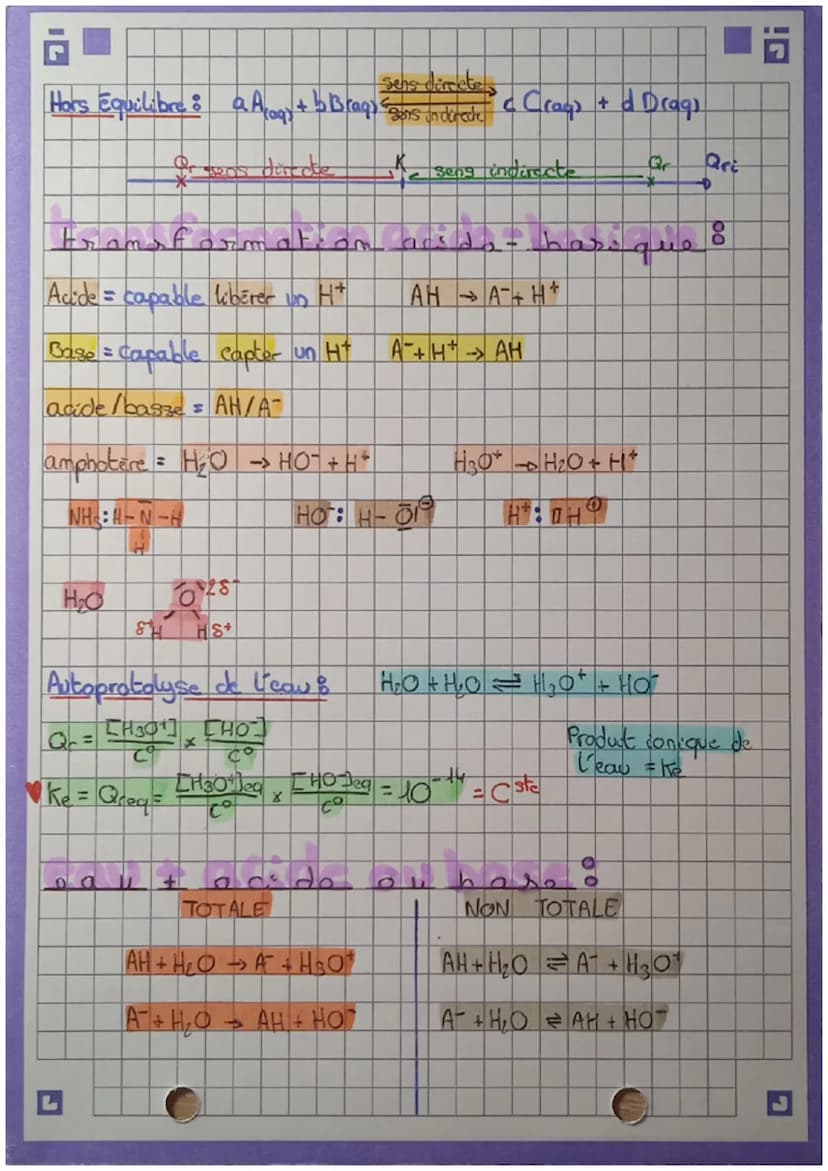 Hors Equilibre : aA(aq) + bB(aq) sens directe / sens indirecte cC(aq) + dD(aq)
Qr sens directe K sens indirecte Qr Qri
transformation acido-basique :
Acide = capable libérer un H⁺ AH → A⁻ + H⁺
Base = capable capter un H⁺ A⁻ + H⁺ → AH
acide/basse = AH/A⁻
amphotère = H₂O → HO⁻ + H⁺ H₃O⁺ → H₂O + H⁺
NH₃ : H - N̄ - H HO⁻ : H - Ō|⊖ H⁺ : □ H⊕
H
H₂O O 2δ⁻
δ⁺H H δ⁺
Autoprotolyse de l'eau : H₂O + H₂O ⇌ H₃O⁺ + HO⁻
Qr = [H₃O⁺]/C° × [HO⁻]/C° Produit ionique de
l'eau = Ke
♥ Ke = Qr,eq = [H₃O⁺]eq/C° × [HO⁻]eq/C° = 10⁻¹⁴ = Cste
eau + acide ou base :
TOTALE NON TOTALE
AH + H₂O → A⁻ + H₃O⁺ AH + H₂O ⇌ A⁻ + H₃O⁺
A⁻ + H₂O → AH + HO⁻ A⁻ + H₂O ⇌ AH + HO⁻